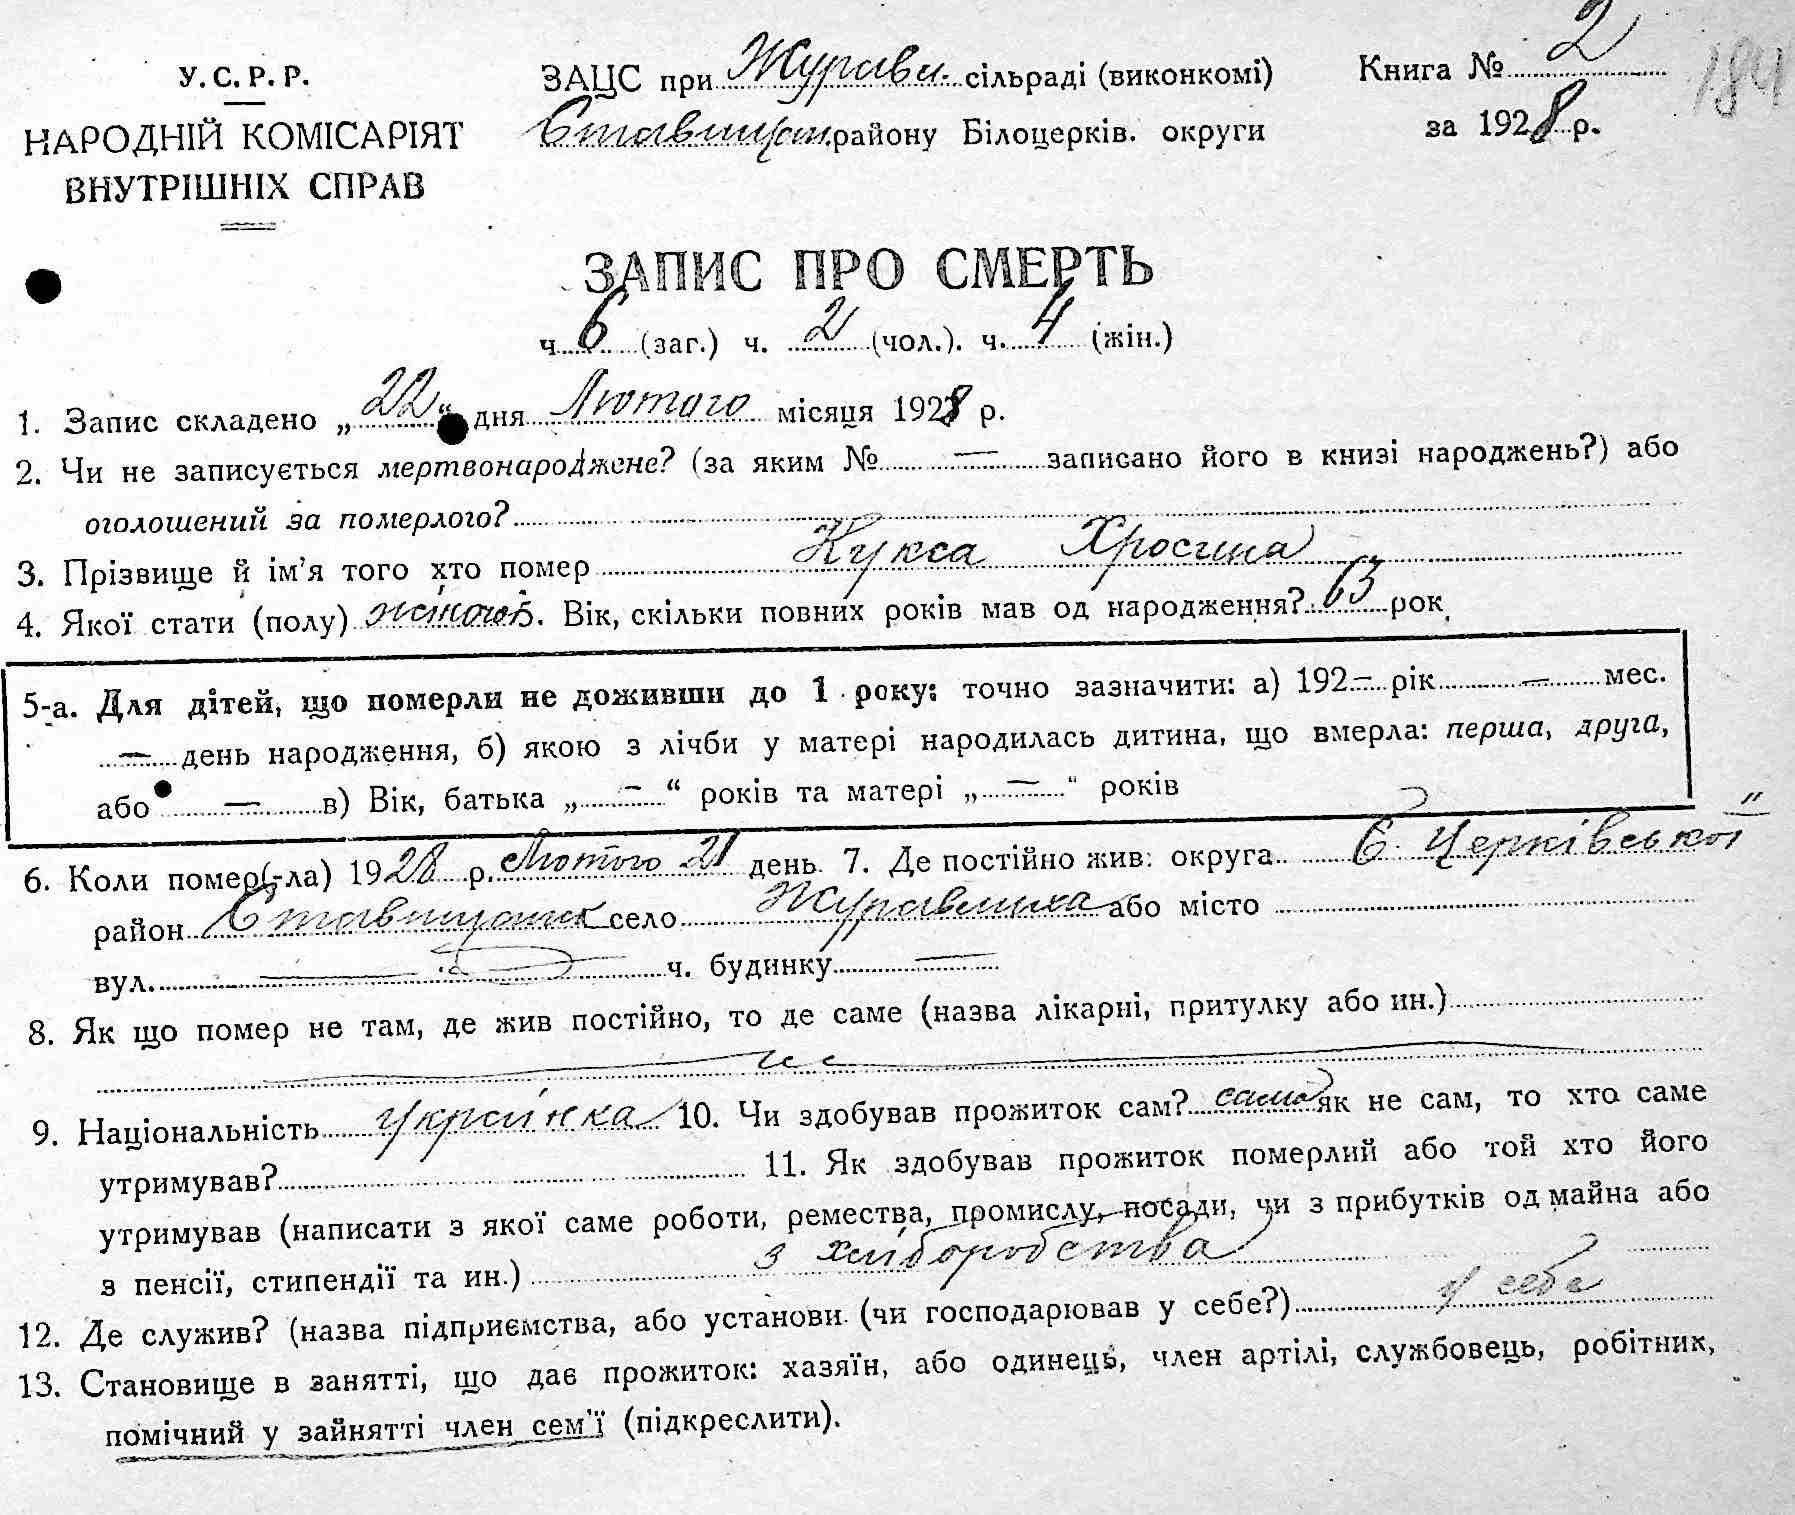 У.С.Р.Р.
НАРОДНІЙ КОМІСАРІЯТ
ВНУТРІШНІХ СПРАВ
ЗАЦС при Журавл. сільраді (виконкомі)
Ставищан. району Білоцерків. округи
Книга № 2
за 1928 р.
184
ЗАПИС ПРО СМЕРТЬ
ч. 6 (заг.) ч. 2 (чол.). ч. 4 (жін.)
1. Запис складено „22“ дня Лютого місяця 1928 р.
2. Чи не записується мертвонароджене? (за яким № — записано його в книзі народжень?) або
оголошений за померлого?
3. Прізвище й ім'я того хто помер Кукса Хросина
4. Якої стати (полу) жіночоі. Вік, скільки повних років мав од народження? 63 рок.
5-а. Для дітей, що померли не доживши до 1 року: точно зазначити: а) 192— рік — мес.
— день народження, б) якою з лічби у матері народилась дитина, що вмерла: перша, друга,
або — в) Вік, батька „—“ років та матері „—“ років
6. Коли помер(-ла) 1928 р. Лютого 21 день. 7. Де постійно жив: округа Б. Церківської
район Ставищанск село Журавлиха або місто
вул. — ч. будинку —
8. Як що помер не там, де жив постійно, то де саме (назва лікарні, притулку або ин.)
9. Національність українка 10. Чи здобував прожиток сам? сама як не сам, то хто саме
утримував? 11. Як здобував прожиток померлий або той хто його
утримував (написати з якої саме роботи, ремества, промислу, посади, чи з прибутків од майна або
з пенсії, стипендії та ин.) з хліборобства
12. Де служив? (назва підприємства, або установи. (чи господарював у себе?) у себе
13. Становище в занятті, що дає прожиток: хазяїн, або одинець, член артілі, службовець, робітник,
помічний у зайнятті член сем'ї (підкреслити).